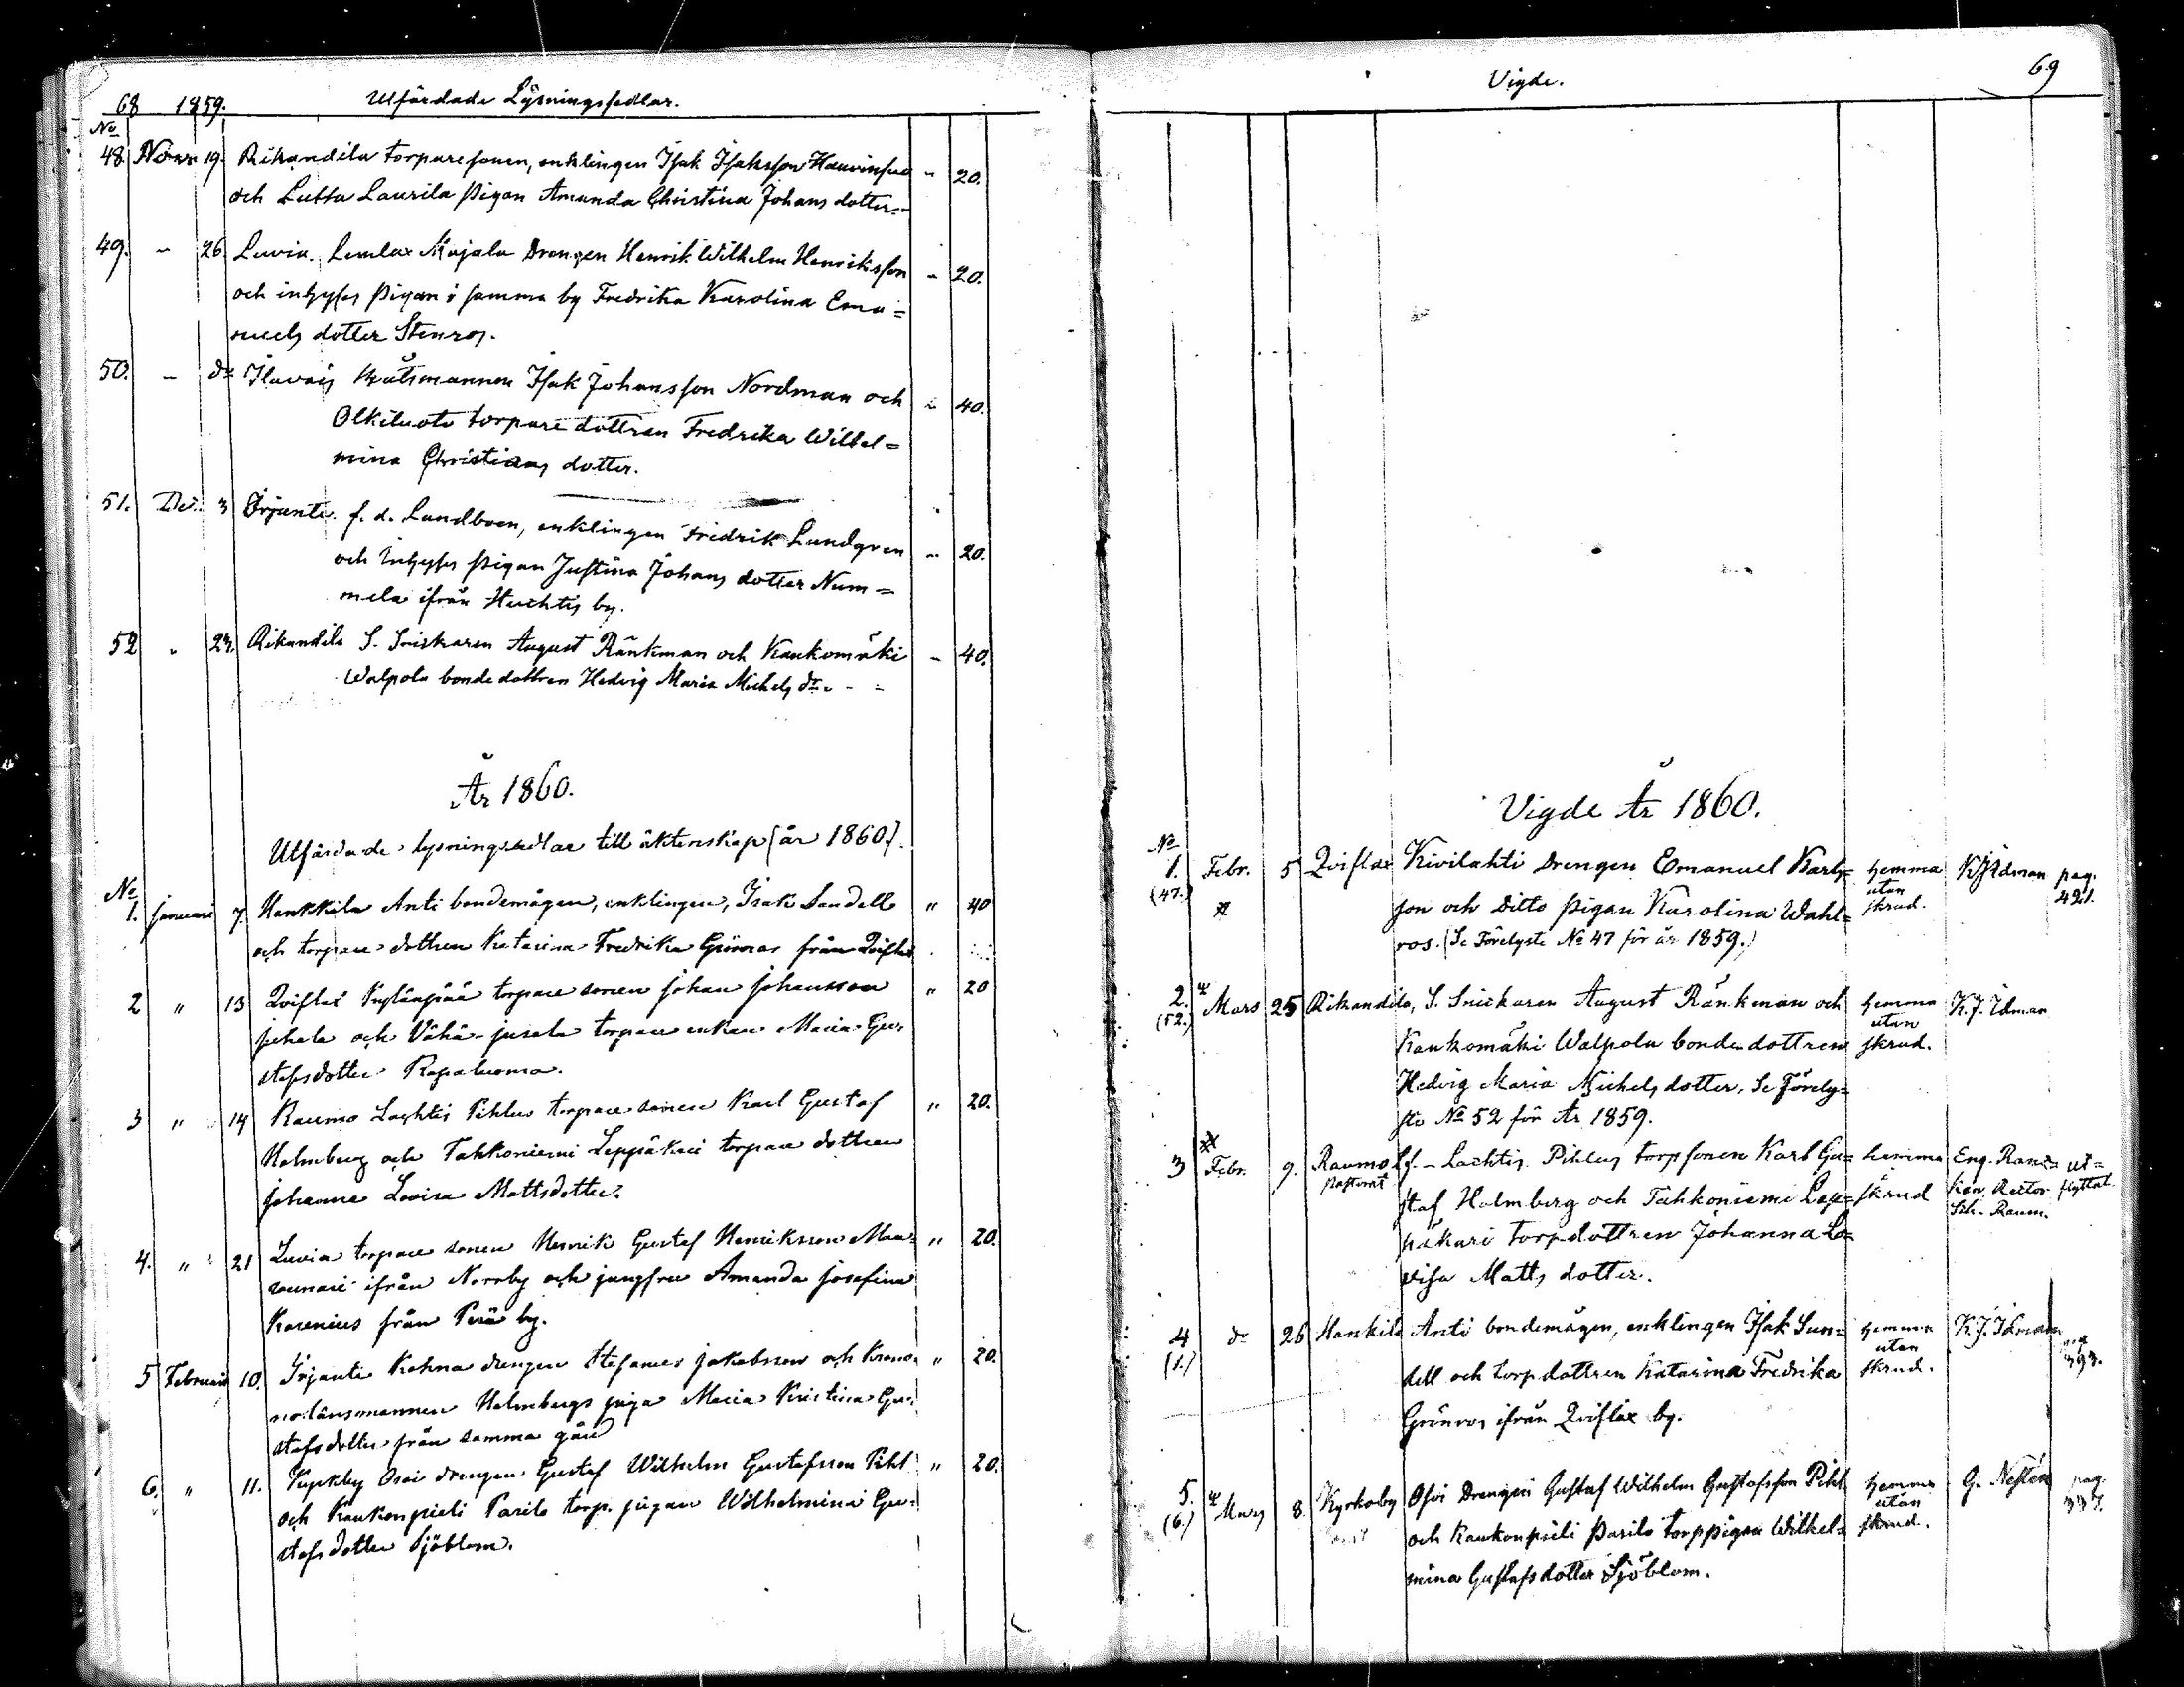 68 1859. Utfärdade Lysningssedlar.
No
48. Novr 19. Rikandila torparesonen, enklingen Isak Isaksson Hauvinsuu " 20.
och Lutta Laurila pigan Amanda Christina Johans dotter.
49. " 26. Luvia. Lemlax Majala Drengen Henrik Wilhelm Henriksson " 20.
och inhyses pigan i samma by Fredrika Karolina Ema=
nuels dotter Stenros.
50. " do Ilavais Båtsmannen Isak Johansson Nordman och " 40.
Olkiluoto torpare dottren Fredrika Wilhel=
mina Christians dotter.
51. Dec. 3 Irjante. f. d. Landboen, enklingen Fredrik Lundgren " 20.
och Inhyses pigan Justina Johans dotter Num=
mela ifrån Huchtis by.
52 " 23. Rikandila S. Snickaren August Ränkman och Kaukomäki " 40.
Walpola bonde dottren Hedvig Maria Michels dr
År 1860.
Utfärdade lysningssedlar till äktenskap (år 1860).
No
1. Januari 7. Hankkila Anti bondemågen, enklingen, Isak Sundell " 40
och torpare dottren Katarina Fredrika Grönros från Qviflax
2 " 13 Qviflax torpare sonen Johan Johansson " 20
och Vähä-jusala torpare enkan Maria Gu-
stafsdotter Rapaluoma.
3 " 14 Raumo Lachtis Pihlus torpare sonen Karl Gustaf " 20.
Holmberg och Tahkoniemi Leppäkari torpare dottren
Johanna Lovisa Mattsdotter.
4. " 21 Luvia torpare sonen Henrik Gustaf Henriksson " 20.
ifrån Norrby och jungfru Amanda Josefina
Karenius från Perä by.
5 Februari 10. Irjante Kahna drengen Stefanus Jakobsson och Krono- " 20.
länsmannen Holmbergs piga Maria Kristina Gu-
stafsdotter från samma gård
6. " 11. Kyrkby Osoi drengen Gustaf Wilhelm Gustafsson Pihl " 20.
och Kaukonpieli Parila torp. pigan Wilhelmina Gu-
stafsdotter Sjöblom.
Vigde. 69
Vigde År 1860.
No
1. (47.) Febr. 5 Qviflax Kivilahti Drengen Emanuel Karls= hemma utan skrud. K J Idman pag. 421.
son och Ditto pigan Karolina Wahl=
ros. (Se Förelyste No 47 för år 1859.)
2. (52.) Mars 25 Rikandila, S. Snickaren August Ränkman och hemma utan skrud. K. J. Idman
Kaukomäki Walpola bonde dottren
Hedvig Maria Michels dotter. Se Förely=
ste No 52 för År 1859.
3 Febr. 9. Raumo Lf. - Lachtis Pihlus torpsonen Karl Gu= hemma skrud
pastorat
staf Holmberg och Tahkoniemi Lep=
päkari torpdottren Johanna Lo=
visa Matts dotter.
4 (1.) do 26 Hankila Anti bondemågen, enklingen Isak Sun= hemma utan skrud. K. J. Idman pag 393.
dell och torpdottren Katarina Fredrika
Grönros ifrån Qviflax by.
5. (6.) Mars 8. Kyrkoby Osoi Drengen Gustaf Wilhelm Gustafsson Pihl hemma utan skrud. G. Nestén pag.
och Kaukonpieli Parila torppigan Wilhel=
mina Gustafsdotter Sjöblom.